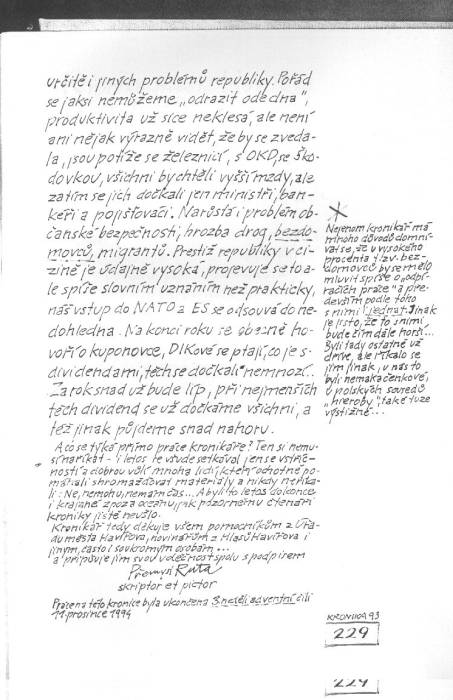 určitě i jiných problémů republiky. Pořád
se jaksi nemůžeme „odrazit ode dna",
produktivita už sice neklesá, ale není
ani nějak výrazně vidět, že by se zveda-
la, jsou potíže se železnicí, s OKD, se Ško-
dovkou, všichni by chtěli vyšší mzdy, ale
zatím se jich dočkali jen ministři, ban-
kéři a pojišťováci. Narůstá i problém ob-
čanské bezpečnosti, hrozba drog, bezdo-
movců, migrantů. Prestiž republiky v ci-
zině je údajně vysoká, projevuje se to a-
le spíše slovním uznáním než prakticky,
náš vstup do NATO a ES se odsouvá do ne-
dohledna. Na konci roku se obecně ho-
voří o kuponovce, DIKové se ptají, co je s
dividendami, těch se dočkali nemnozí...
Za rok snad už bude líp, při nejmenších
těch dividend se už dočkáme všichni, a
též jinak půjdeme snad nahoru.
A co se týká přímo práce kronikáře? Ten si nemu-
sí naříkat - i letos se všude setkával jen se vstřic-
ností a dobrou vůlí mnoha lidí, kteří ochotně po-
máhali shromažďovat materiály a nikdy neříka-
li: Ne, nemohu, nemám čas... A byli to letos dokonce
i krajané zpoza oceánu, jak pozornému čtenáři
kroniky jistě neušlo.
Kronikář tedy děkuje všem pomocníkům z Úřa-
du města Havířova, novinářům z Hlasů Havířova i
jiným, často i soukromým osobám...
a připojuje jim svou vděčnost spolu s podpisem
Přemysl Ruta
skriptor et pictor
Práce na této kronice byla ukončena 3. neděli adventní čili
11. prosince 1994
Nejenom kronikář má
mnoho důvodů domní-
vat se, že u vysokého
procenta t.zv. bez-
domovců by se mělo
mluvit spíše o „odpí-
račích práce" a pře-
devším podle toho
s nimi i jednat. Jinak
je jisto, že to s nimi
bude čím dále horší...
Byli tady ostatně už
dříve, ale říkalo se
jim jinak, u nás to
byli nemakačenkové,
u polských sousedů
„nieroby", také tuze
výstižné...
KRONIKA 93
229
229